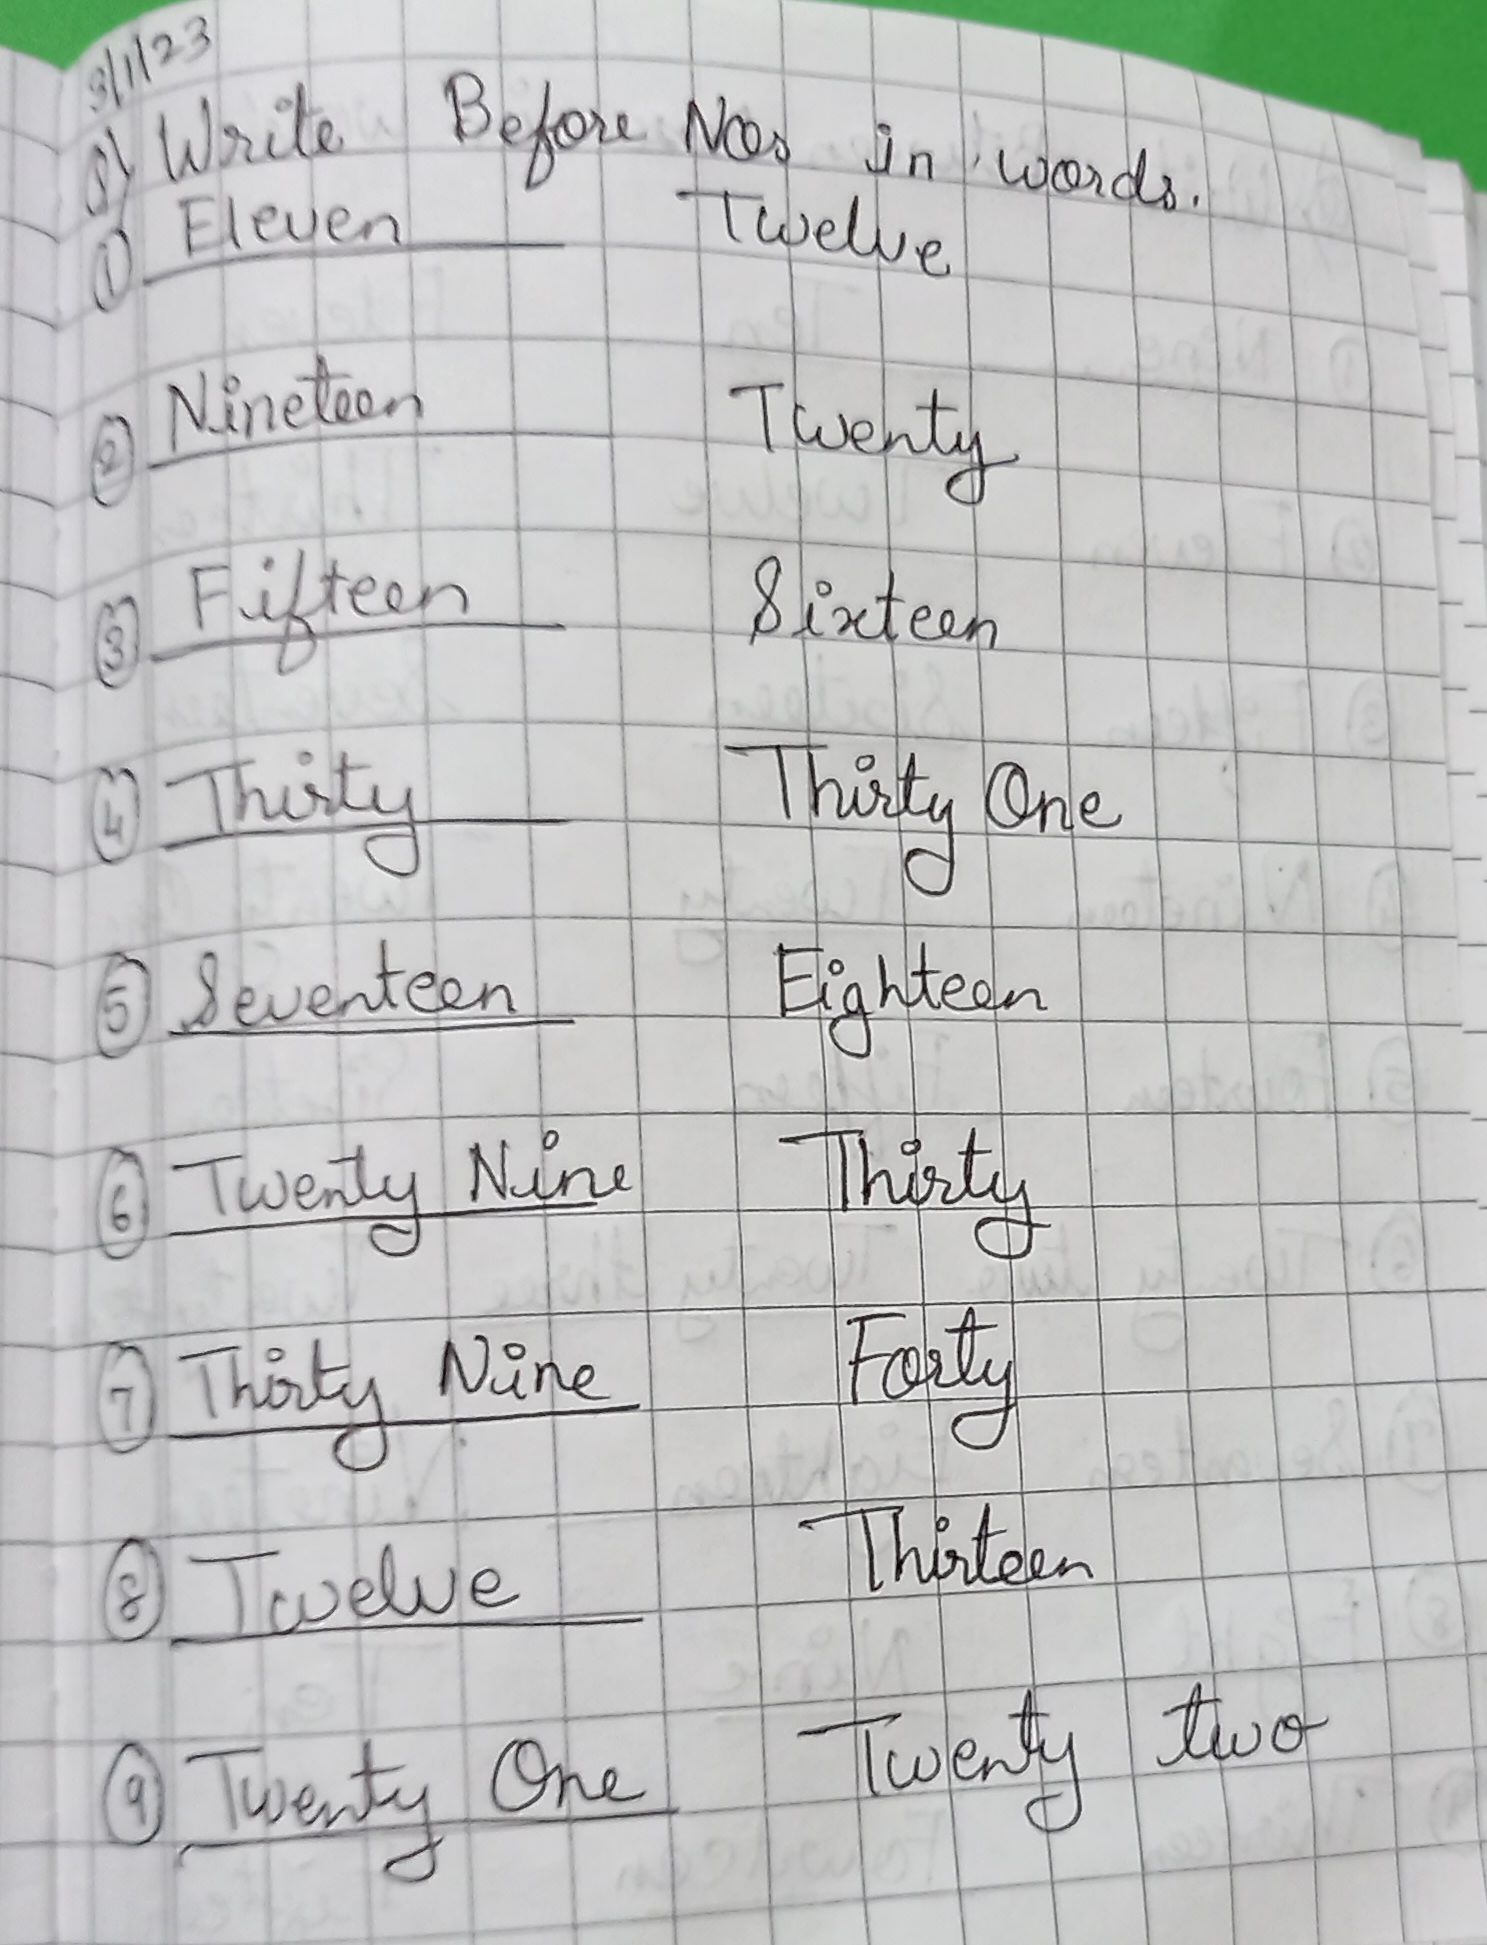 3/1/23
Q) Write Before Nos in words.
① Eleven Twelve
② Nineteen Twenty
③ Fifteen Sixteen
④ Thirty Thirty One
⑤ Seventeen Eighteen
⑥ Twenty Nine Thirty
⑦ Thirty Nine Forty
⑧ Twelve Thirteen
⑨ Twenty One Twenty two